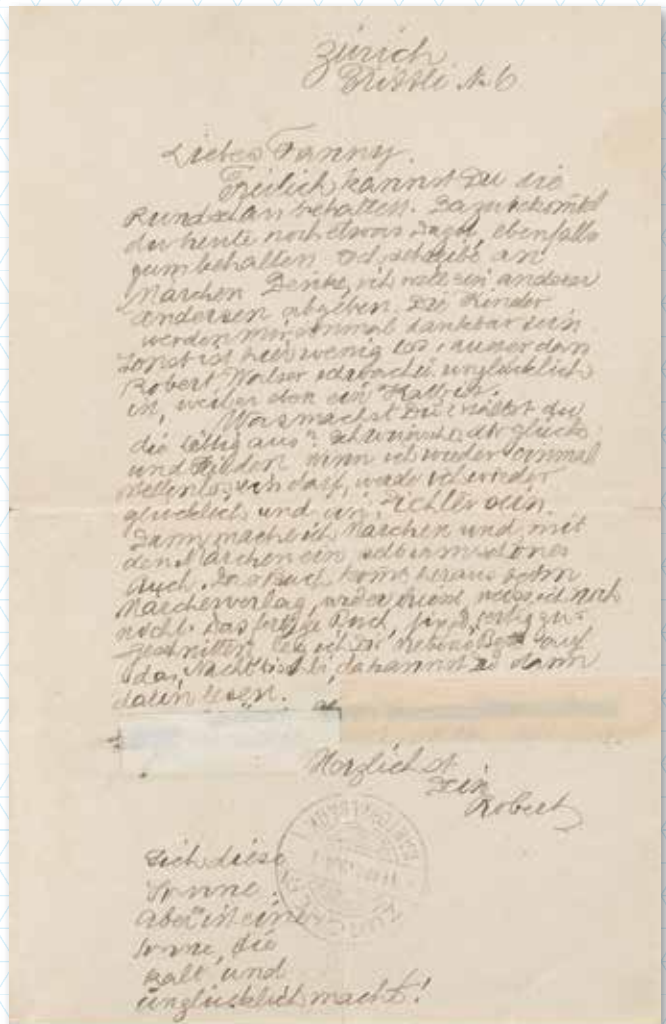 Zürich
Liebes Fanny.
Freilich kannst Du die
Rundschau behalten. Dazu bekommst
du heute noch etwas dazu, ebenfalls
zum behalten. Ich schreibe an
Märchen. Denke, ich will ein anderer
Andersen abgeben. Die Kinder
werden mir einmal dankbar sein.
Sonst ist hier wenig los, ausser dass
Robert Walser unglücklich
ist, weil er ein
Was machst Du? Hältst du
die aus? Ich wünsche dir Glück
und wenn ich wieder einmal
stellenlos sein darf, werde ich wieder
glücklich und ein Dichter sein.
Dann mache ich Märchen und mit
den Märchen ein schönes
Buch. Das Buch kommt heraus beim
Märchenverlag, weiss ich noch
nicht. Das fertige Buch,
leg ich Dir neben Bett auf
das Nachttischli, da kannst Du dann
darin lesen.
Herzlichst
Dein
Robert
Sieh diese
Sonne.
Aber ist eine
Sonne, die
kalt und
unglücklich macht!